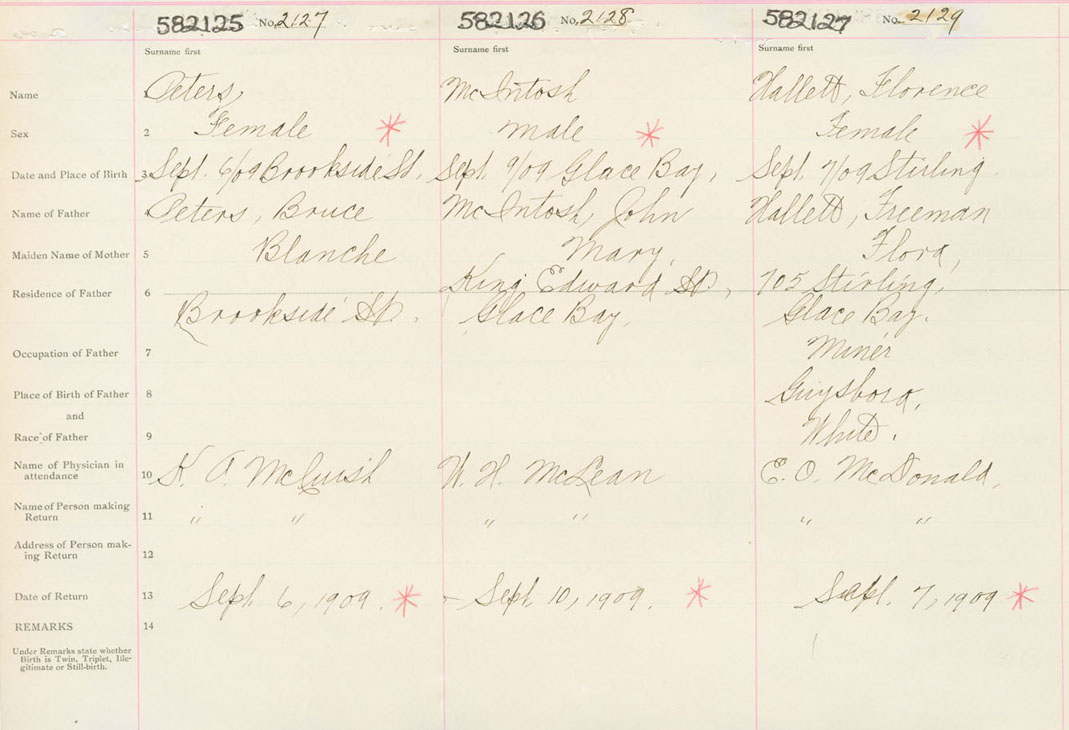 582125 No. 2127 582126 No. 2128 582127 No. 2129
Surname first Surname first Surname first
Name 1 Peters, McIntosh Hallett, Florence
Sex 2 Female Male Female
Date and Place of Birth 3 Sept. 6/09 Brookside St. Sept. 9/09 Glace Bay, Sept. 7/09 Stirling
Name of Father Peters, Bruce McIntosh, John Hallett, Freeman
Maiden Name of Mother 5 Blanche Mary, Flora,
King Edward St, 705 Stirling,
Residence of Father 6
Brookside St. Glace Bay. Glace Bay.
Occupation of Father 7 Miner
Place of Birth of Father 8 Guysboro,
and
Race of Father 9 White.
Name of Physician in
attendance 10 K. A. McCuish W. H. McLean E. O. McDonald,
Name of Person making
Return 11 " " " " " "
Address of Person mak-
ing Return 12
Date of Return 13 Sept. 6, 1909. Sept. 10, 1909. Sept. 7, 1909
REMARKS 14
Under Remarks state whether
Birth is Twin, Triplet, Ille-
gitimate or Still-birth.